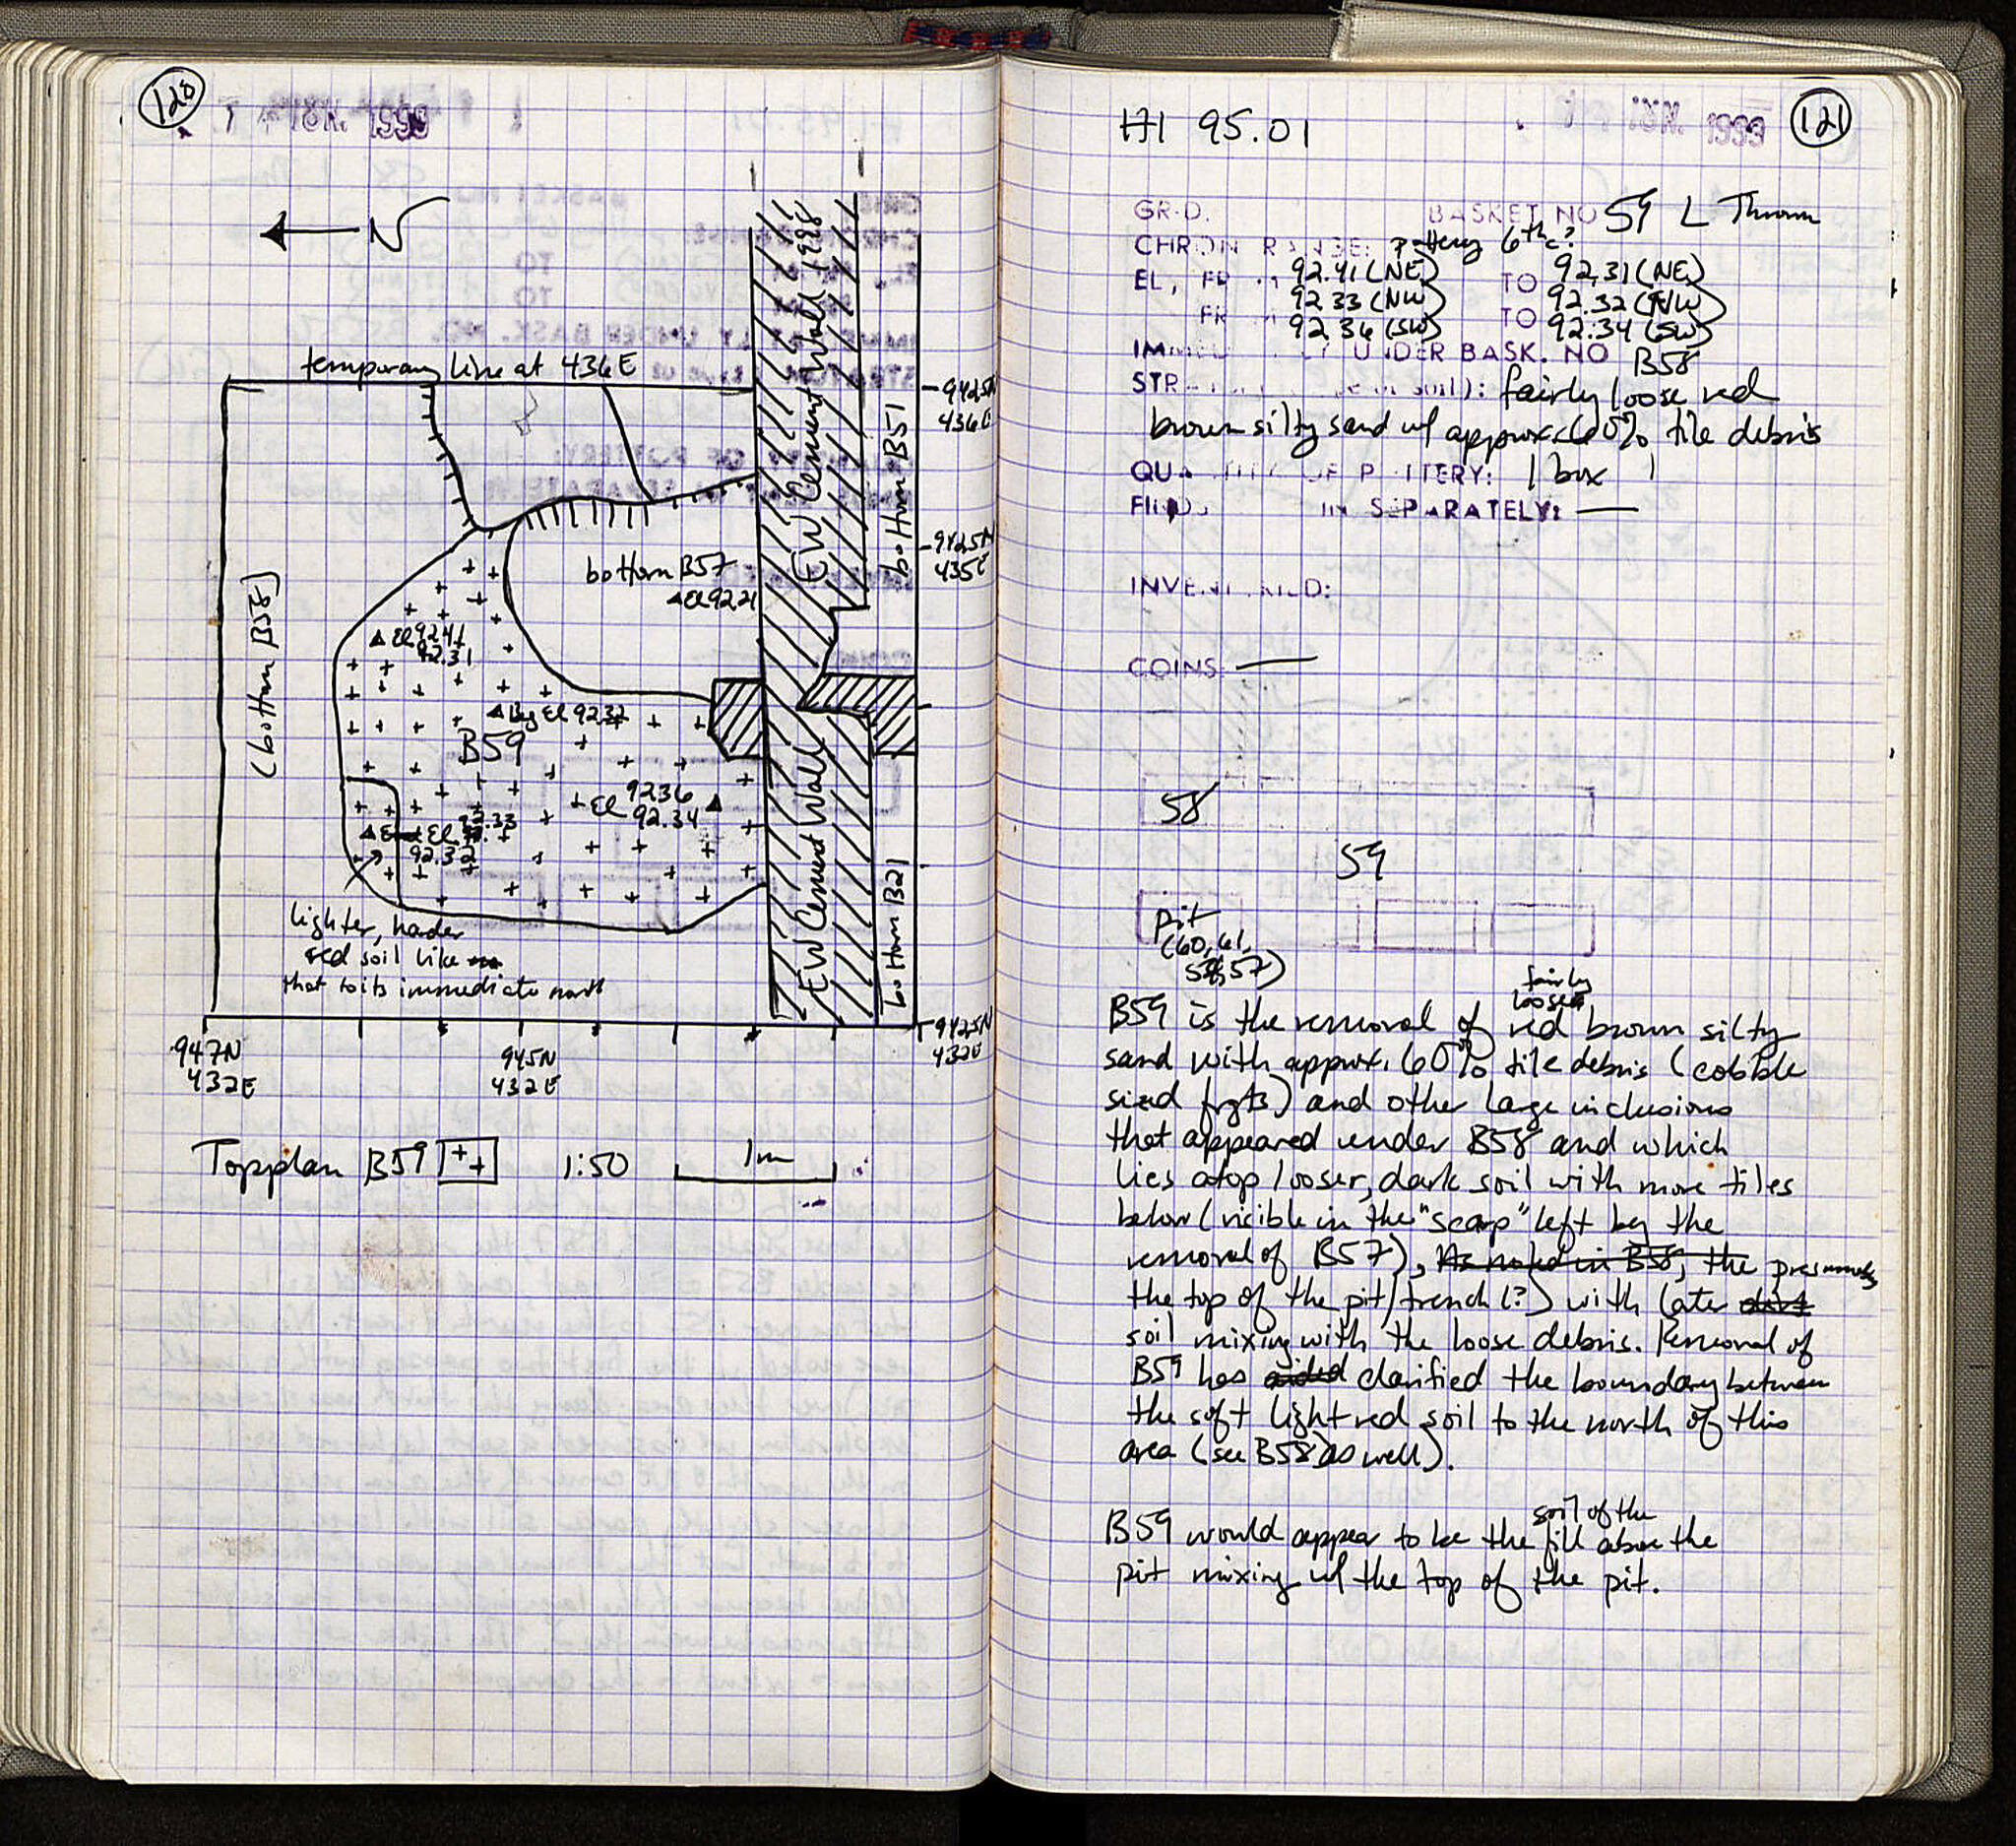 120
1 4 JUN. 1999
N
temporary line at 436E
EW Cement Wall 1998
bottom B51
942.5N
436E
942.5N
435E
bottom B57
El 92.21
(bottom B58)
El 92.41
92.31
Beg El 92.32
B59
El 92.36
92.34
El 92.33
92.32
EW Cement Wall
bottom B21
lighter, harder
red soil like
that to its immediate north
942.5N
432E
947N
432E
945N
432E
Topplan B59 ++ 1:50 1m
HI 95.01
1 4 JUN. 1999
121
GRID. BASKET NO 59 L Thronn
CHRON RANGE: pottery 6th c?
EL, FROM 92.41 (NE) TO 92.31 (NE)
92.33 (NW) 92.32 (NW)
FROM 92.36 (SW) TO 92.34 (SW)
IMMEDIATELY UNDER BASK. NO B58
STRATUM (type of soil): fairly loose red
brown silty sand w/ approx. 60% tile debris
QUANTITY OF POTTERY: 1 box
FINDS IN SEPARATELY: —
INVENTORIED:
COINS —
58
59
pit
(60, 61,
58, 57)
B59 is the removal of fairly loose red brown silty
sand with approx. 60% tile debris (cobble
sized frgts) and other large inclusions
that appeared under B58 and which
lies atop looser, dark soil with more tiles
below (visible in the "scarp" left by the
removal of B57), As noted in B58, the presumably
the top of the pit/trench (?) with later dirt
soil mixing with the loose debris. Removal of
B59 has aided clarified the boundary between
the soft light red soil to the north of this
area (see B58 as well).
B59 would appear to be the soil of the fill above the
pit mixing w/ the top of the pit.